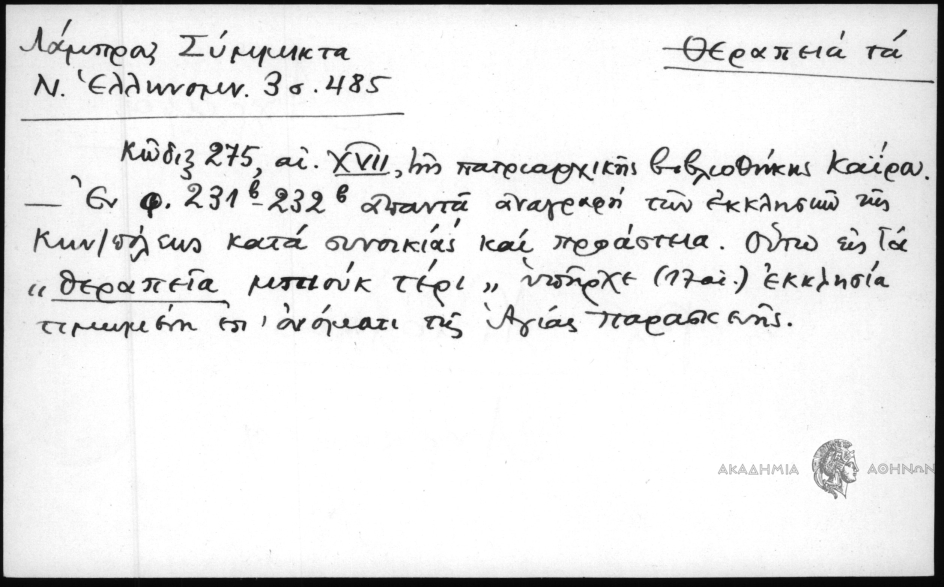 Λάμπρος Σύμμικτα
Ν. Ἑλληνομν. 3 σ. 485
Θεραπειά τά
Κῶδιξ 275, αἰ. XVII, τῆς πατριαρχικῆς βιβλιοθήκης Καΐρου.
— Ἐν φ. 231β-232β ἀπαντᾷ ἀναγραφή τῶν ἐκκλησιῶν τῆς
Κων/πόλεως κατά συνοικίας καί προάστεια. Οὕτω εἰς Τά
„Θεραπεῖα μπιούκ τέρι„ ὑπῆρχε (17 αἰ.) ἐκκλησία
τιμωμένη ἐπ' ὀνόματι τῆς Ἁγίας Παρασκευῆς.
ΑΚΑΔΗΜΙΑ ΑΘΗΝΩΝ